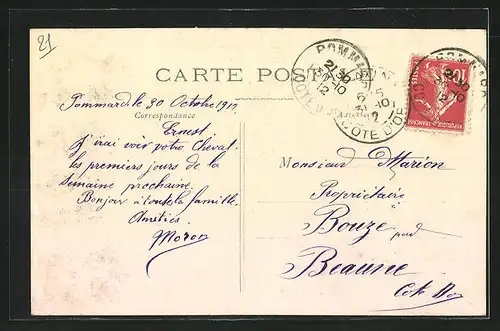 21
CARTE POSTALE
POMMARD
21 30
30 -10
12
CÔTE D'OR
POMMARD
30 -10
12
10c
POSTES
Correspondance
Pommard le 30 Octobre 1912
Ernest
J'irai voir votre Cheval
les premiers jours de la
semaine prochaine.
Bonjour à toute la famille.
Amitiés
Moron
Monsieur Marion
Propriétaire
Bouze par
Beaune
Côte d'Or